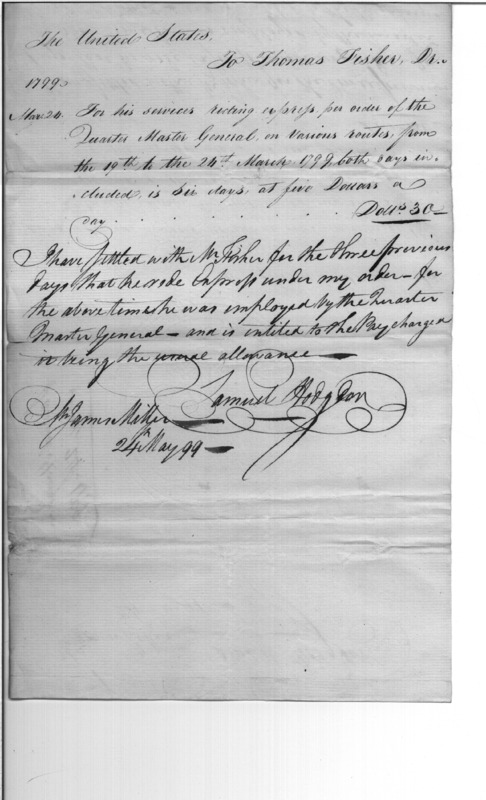 The United States,
To Thomas Fisher, Dr.
1799.
Mar. 24. For his services riding express, per order of the
Quarter Master General, on various routes, from
the 19th to the 24th March 1799, both days in-
cluded, is six days, at five Dollars a
day . . . . . . . Dolls 30—
I have settled with Mr Fisher for the three previous
days that he rode Express under my order— for
the above time he was employed by the Quarter
Master General— and is entitled to the Pay charged
it being the usual allowance—
Samuel Hodgdon
Mr James Miller
24th May 99—